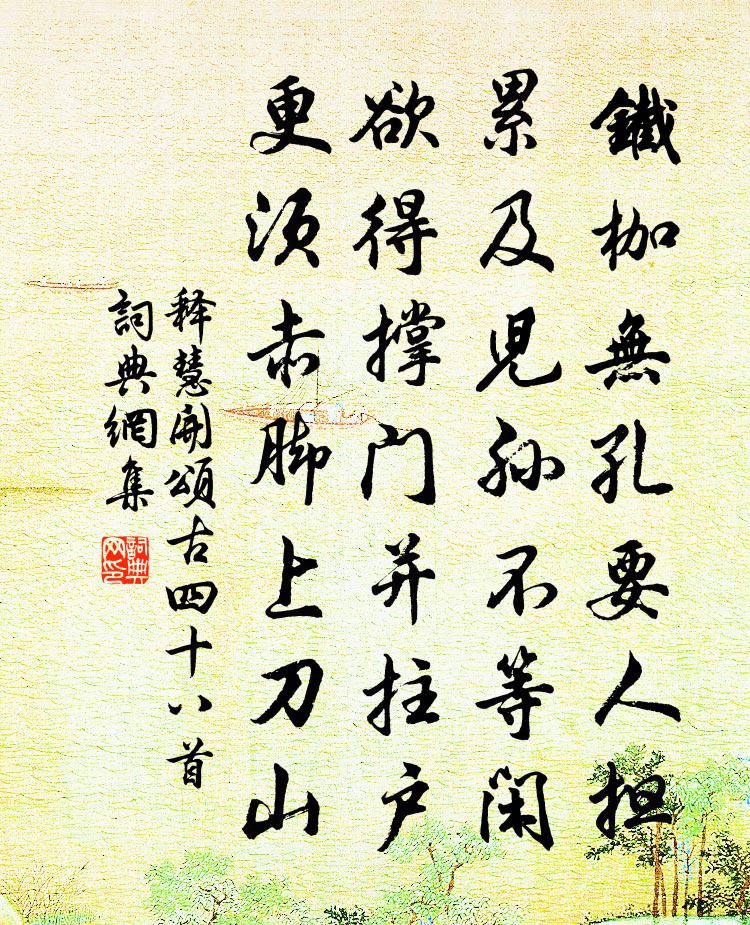 鐵枷無孔要人担
累及児孫不等閑
欲得撐门并拄户
更須赤脚上刀山
释慧開頌古四十八首
詞典網集
詞典网印